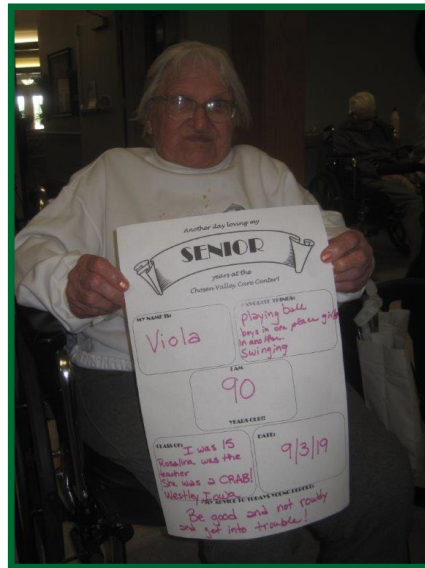 Another day loving my
SENIOR
years at the
Chosen Valley Care Center!
MY NAME IS:
Viola
FAVORITE
playing ball
boys in one place girls
in another
Swinging
I AM
90
YEARS OLD!!
CLASS OF:
I was 15
Rosalina was the
teacher
She was a CRAB!
Westley Iowa
DATE:
9/3/19
MY ADVICE TO TODAYS YOUNG PEOPLE:
Be good and not rowdy
and get into trouble!